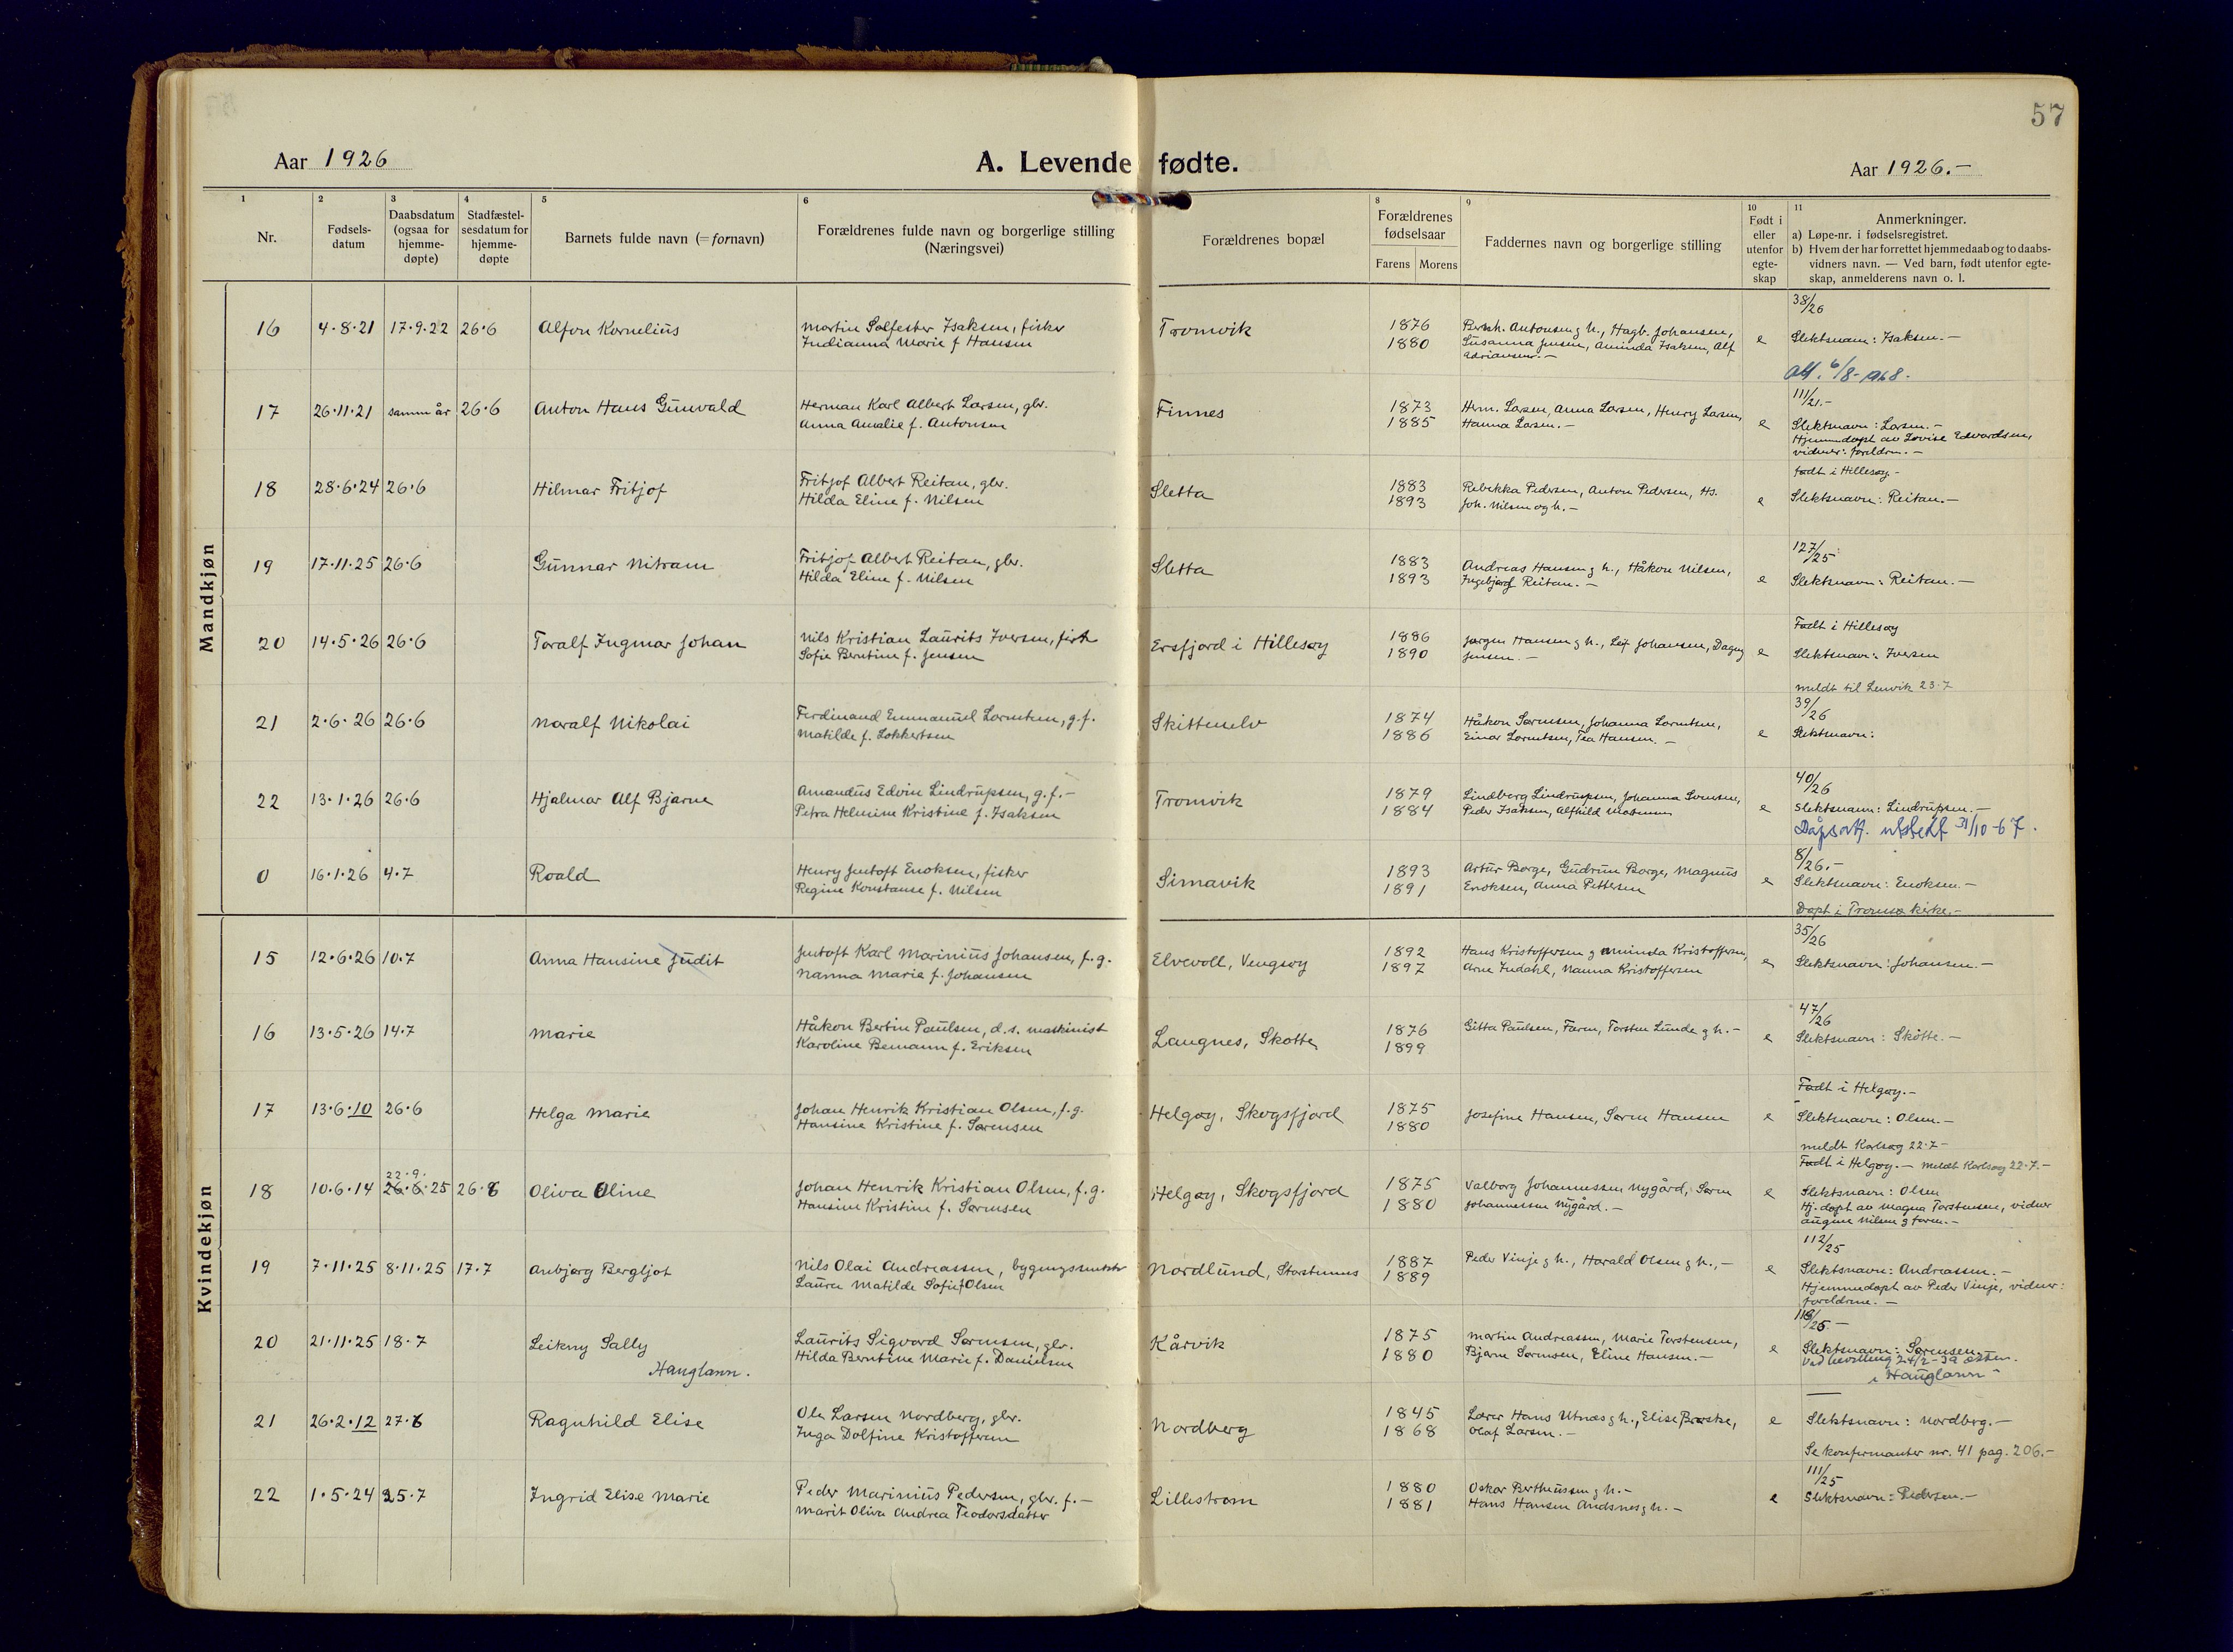 57
Aar 1926
A. Levende fødte.
Aar 1926.-
1 2 3 4 5 6 8 9 10 11
Nr.
Fødsels-
datum
Daabsdatum
(ogsaa for
hjemme-
døpte)
Stadfæstel-
sesdatum for
hjemme-
døpte
Barnets fulde navn (= fornavn)
Forældrenes fulde navn og borgerlige stilling
(Næringsvei)
Forældrenes bopæl
Forældrenes
fødselsaar
Farens Morens
Faddernes navn og borgerlige stilling
Født i
eller
utenfor
egte-
skap
Anmerkninger.
a) Løpe-nr. i fødselsregistret.
b) Hvem der har forrettet hjemmedaab og to daabs-
vidners navn. — Ved barn, født utenfor egte-
skap, anmelderens navn o. l.
Mandkjøn
38/26
16 4.8.21 17.9.22 26.6 Alfon Kornelius Martin Salfester Isaksen, fisker Tromvik 1876 Bernh. Antonsen g h., Hagb. Johansen,
Indianna Marie f Hansen 1880 Susanna Jensen, Aminda Isaksen, Alf e Slektsnavn: Isaksen.-
Adriansen.-
Att. 6/8-1968.
17 26.11.21 samme år 26.6 Anton Hans Gunvald Herman Karl Albert Larsen, gbr. Finnes 1873 Herm. Larsen, Anna Larsen, Henry Larsen, 111/21.-
Anna Amalie f. Antonsen 1885 Hanna Larsen.- e Slektsnavn: Larsen.-
Hjemmedøpt av Lovise Edvardsen,
vidner: foreldre.-
Født i Hillesøy-
18 28.6.24 26.6 Hilmar Fritjof Fritjof Albert Reitan, gbr. Sletta 1883 Rebekka Pedersen, Anton Pedersen, Hs.
Hilda Eline f. Nilsen 1893 Joh. Nilsen og h.- e Slektsnavn: Reitan.-
127/25
19 17.11.25 26.6 Gunnar Nitram Fritjof Albert Reitan, gbr. Sletta 1883 Andreas Hansen g h., Håkon Nilsen,
Hilda Eline f. Nilsen 1893 Ingebjørg Reitan.- e Slektsnavn: Reitan.-
Født i Hillesøy
20 14.5.26 26.6 Toralf Ingmar Johan Nils Kristian Laurits Iversen, fisk Ersfjord i Hillesøy 1886 Jørgen Hansen g h., Leif Johansen, Dagny
Sofie Berntine f. Jensen 1890 Jensen.- e Slektsnavn: Iversen
meldt til Lenvik 23.7
39/26
21 2.6.26 26.6 Noralf Nikolai Ferdinand Emmanuel Lorentsen, g.f. Skittenelv 1874 Håkon Sørensen, Johanna Lorentsen,
Matilde f. Lokkertsen 1886 Einar Lorentsen, Tea Hansen.- e Slektsnavn:
40/26
22 13.1.26 26.6 Hjalmar Alf Bjarne Amandus Edvin Lindrupsen, g.f.- Tromvik 1879 Lindberg Lindrupsen, Johanna Svensen,
Petra Helmine Kristine f. Isaksen 1884 Peder Isaksen, Alfhild e Slektsnavn: Lindrupsen.-
Dåpsatt. utstedt 31/10-67.
8/26.-
0 16.1.26 4.7 Roald Henry Jentoft Enoksen, fisker Simavik 1893 Artur Borge, Gudrun Borge, Magnus
Regine Konstanse f. Nilsen 1891 Enoksen, Anna Pettersen e Slektsnavn: Enoksen.-
Døpt i Tromsø kirke.-
Kvindekjøn
35/26
15 12.6.26 10.7 Anna Hansine Judit Jentoft Karl Marinius Johansen, f.g. Elvevoll, Vengsøy 1892 Hans Kristoffersen g Aminda Kristoffersen,
Nanna Marie f. Johansen 1897 Arne Indahl, Nanna Kristoffersen e Slektsnavn: Johansen.-
47/26
16 13.5.26 14.7 Marie Håkon Bertin Paulsen, d.s. maskinist Langnes, Skotte 1876 Gitta Paulsen, Faren, Torsten Lunde g h.-
Karoline Bemann f. Eriksen 1899 e Slektsnavn: Skotte.-
Født i Helgøy.-
17 13.6.10 26.6 Helga Marie Johan Henrik Kristian Olsen, f.g. Helgøy, Skogsfjord 1875 Josefine Hansen, Søren Hansen e Slektsnavn: Olsen.-
Hansine Kristine f. Sørensen 1880
meldt Karlsøy 22.7-
Født i Helgøy.- meldt Karlsøy 22.7.-
22.9.
18 10.6.14 26.6.25 26.6 Oliva Oline Johan Henrik Kristian Olsen, f.g. Helgøy, Skogsfjord 1875 Valborg Johannessen Nygård, Søren e Slektsnavn: Olsen
Hansine Kristine f. Sørensen 1880 Johannessen Nygård.- Hj.døpt av Magna Torstensen, vidner
Augine Nilsen g faren.-
112/25
19 7.11.25 8.11.25 17.7 Anbjørg Bergljot Nils Olai Andreassen, bygningsmester Nordlund, Storstennes 1887 Peder Vinje g h., Harald Olsen g h.,- e Slektsnavn: Andreassen.-
Laura Matilde Sofie f Olsen 1889 Hjemmedøpt av Peder Vinje, vidner:
foreldrene.-
20 21.11.25 18.7 Leikny Sally Laurits Sigvard Sørensen, gbr. Kårvik 1875 Martin Andreassen, Marie Torstensen,
Hauglann. Hilda Berntine Marie f. Danielsen 1880 Bjarne Sørensen, Eline Hansen.- e Slektsnavn: Sørensen.
Ved bevilling 24/2-39
i Hauglann-
21 26.2.12 27.6 Ragnhild Elise Ole Larsen Nordberg, gbr. Nordberg 1845 Lærer Hans Utnæs g h., Elise Barske, e Slektsnavn: Nordbrg.-
Inga Dolfine Kristoffersen 1868 Olaf Larsen.-
Se konfirmanter nr. 41 pag. 206.-
111/25
22 1.5.24 25.7 Ingrid Elise Marie Peder Marinius Pedersen, gbr. f.- Lillestrøm 1880 Oskar Bertheussen g h.-
Marit Oliva Andrea Teodorsdatter 1881 Hans Hansen Andsnes g h.- e Slektsnavn: Pedersen.-